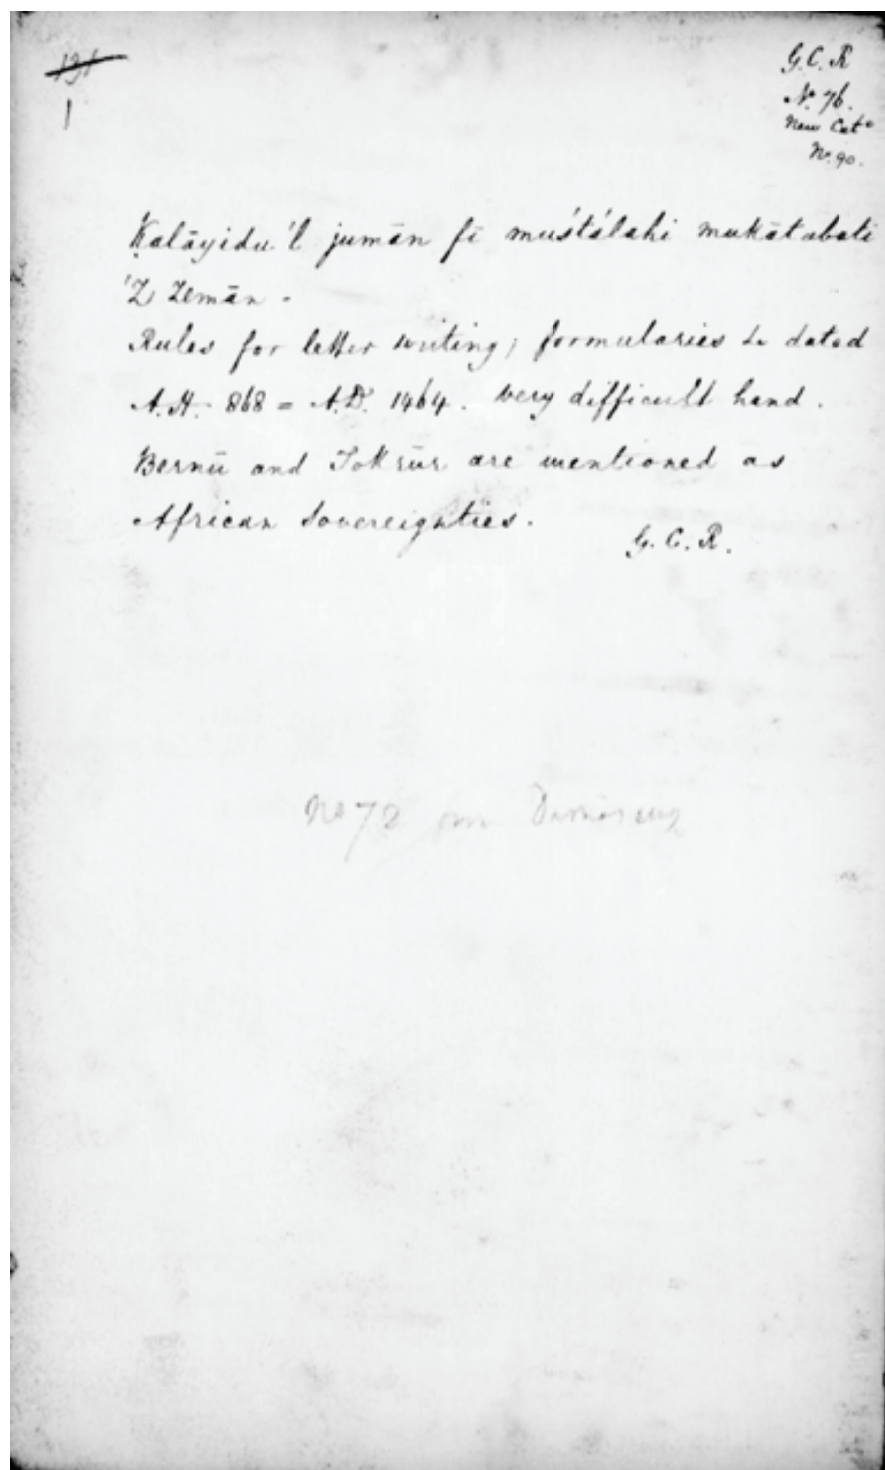 191
1
G.C.R
No. 76.
New Cat.
No. 90.
Ḳalāyidu'l jumān fī musṭálahi mukātabati
'Z Zemān.
Rules for letter writing; formularies &c dated
A.H. 868 = A.D. 1464. very difficult hand.
Bernū and Tokrūr are mentioned as
African Sovereignties.
G.C.R.
No 72